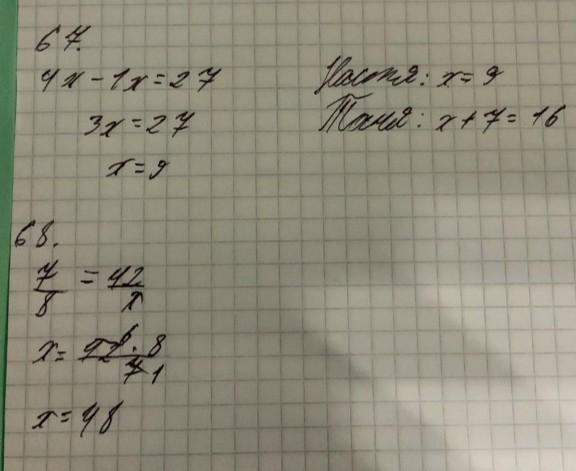 67.
4x - 1x = 27
3x = 27
x = 9
Настя: x = 9
Таня: x + 7 = 16
68.
7/8 = 42/x
x = 42 6 · 8 / 7 1
x = 48